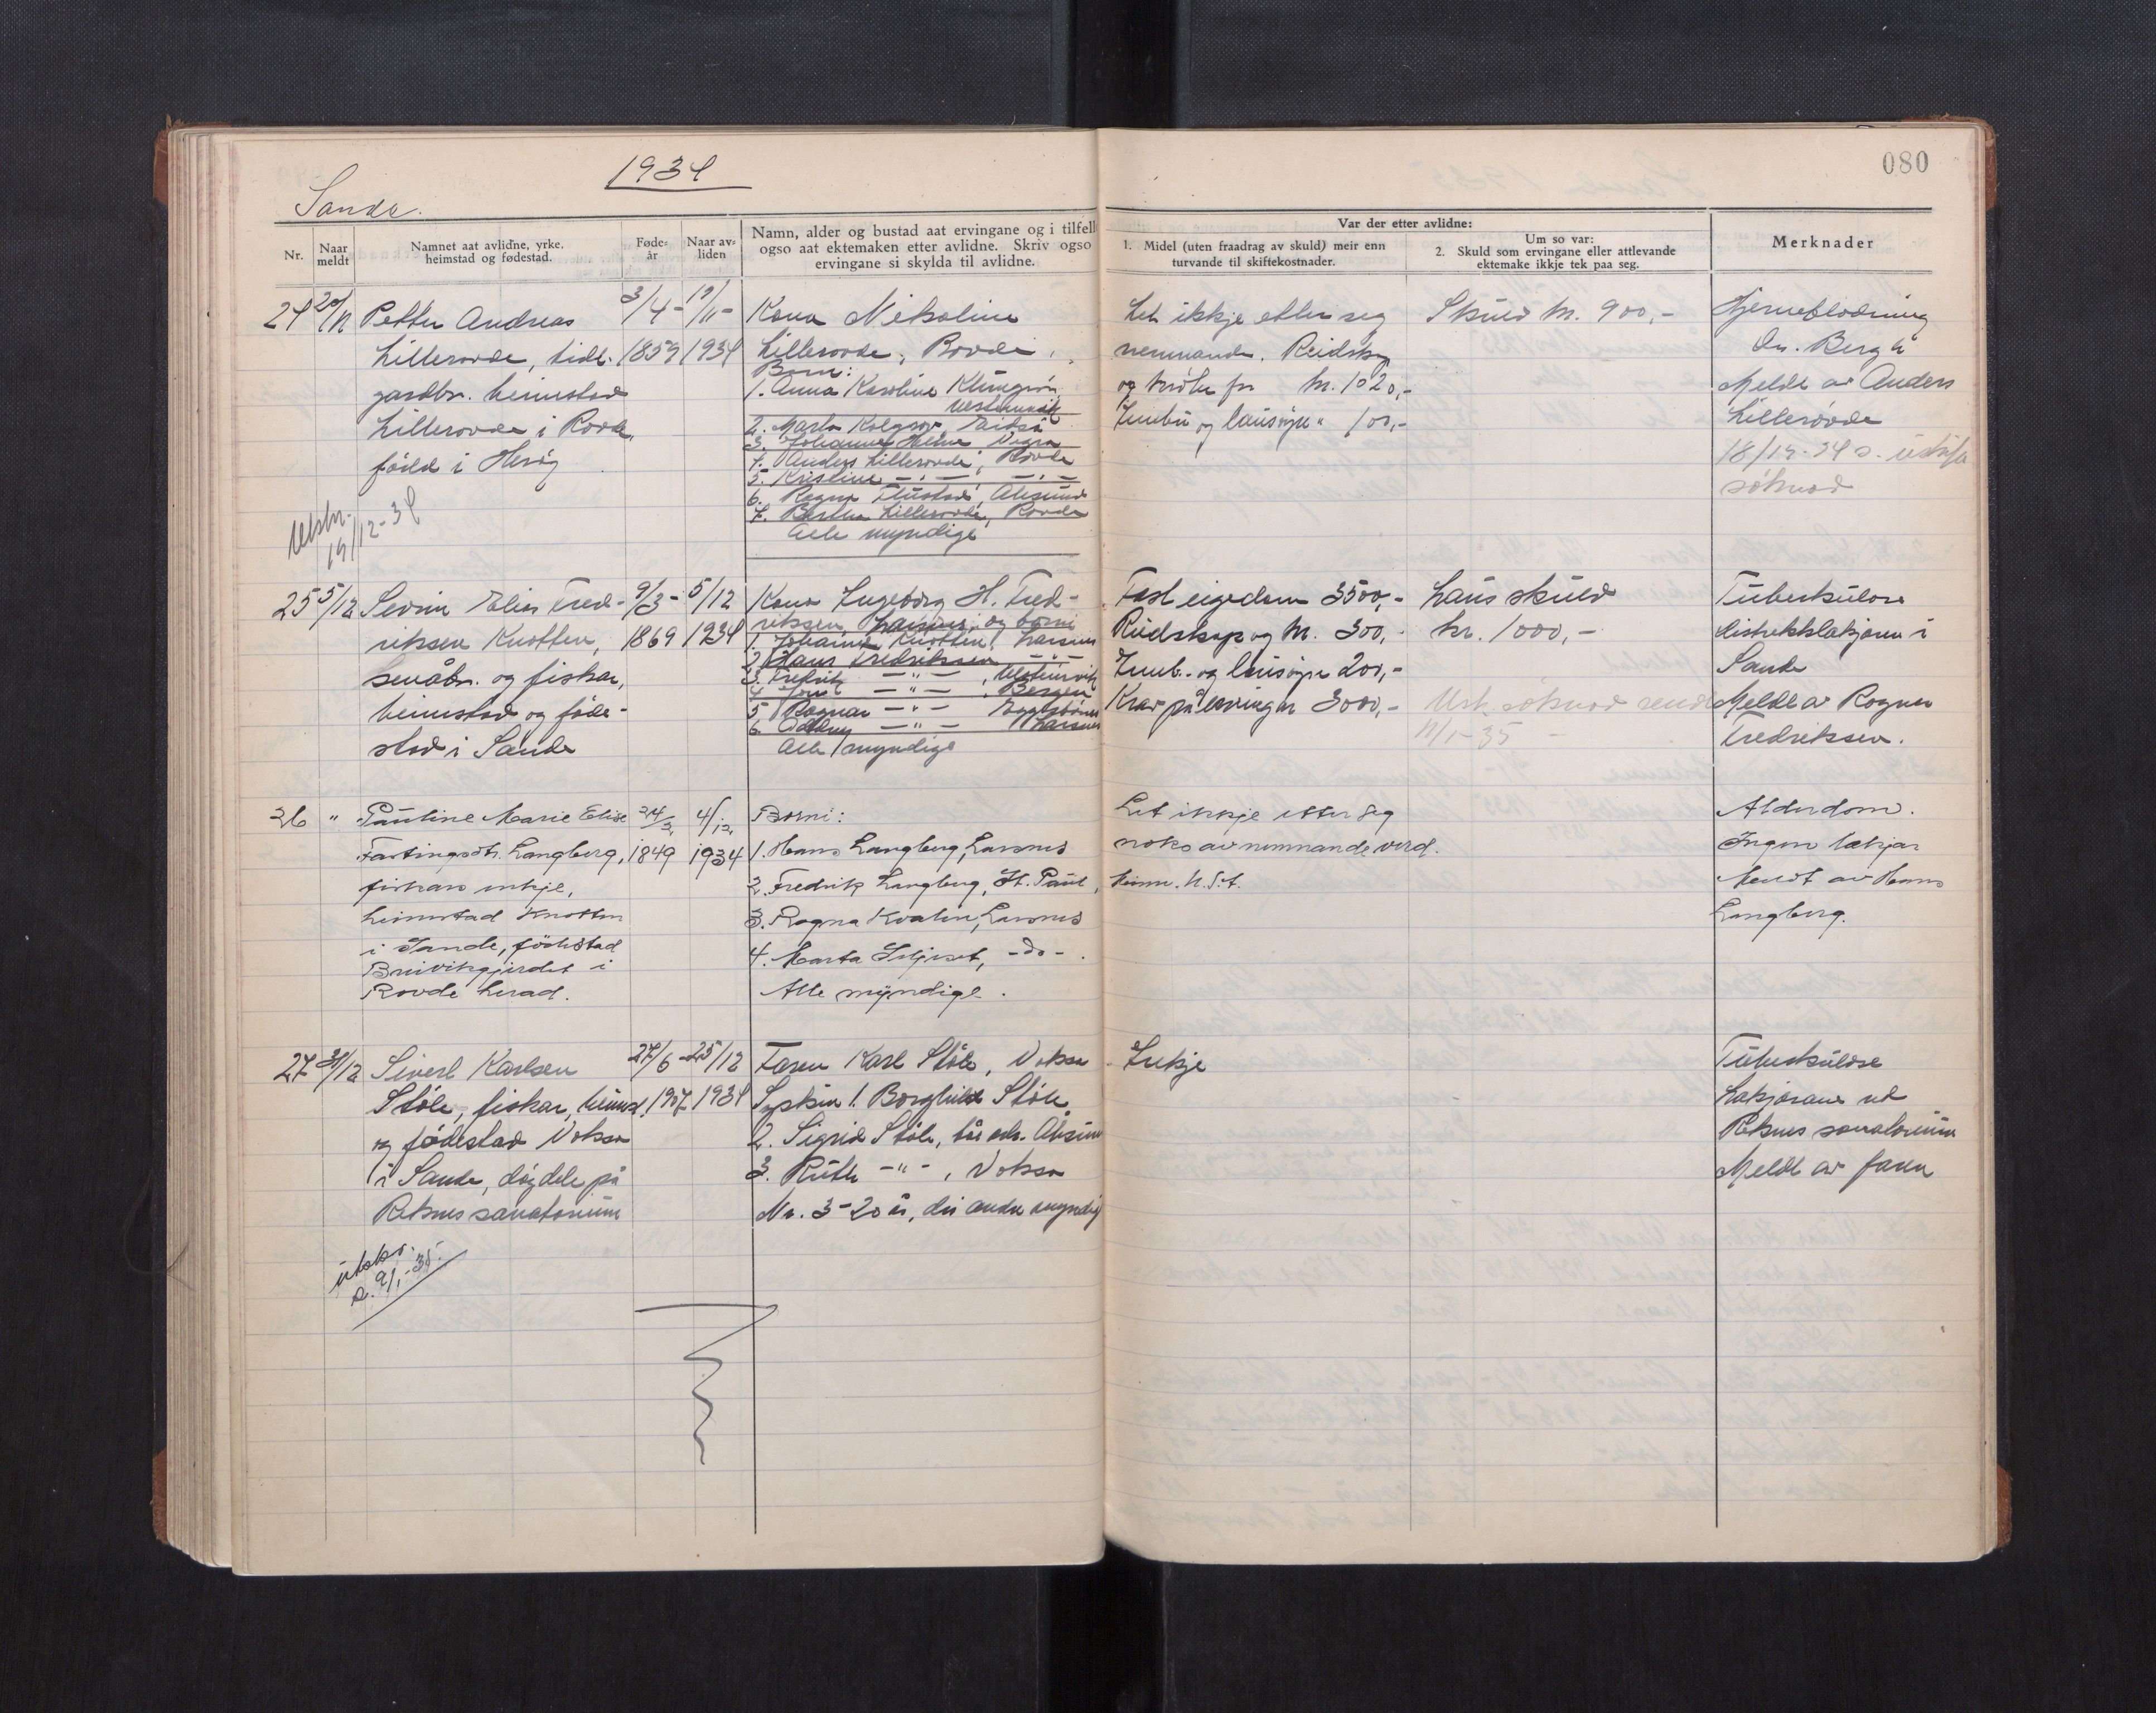 1934
080
Sande.
Nr.
Naar meldt
Namnet aat avlidne, yrke, heimstad og fødestad.
Føde-år
Naar av-liden
Namn, alder og bustad aat ervingane og i tilfell
ogso aat ektemaken etter avlidne. Skriv ogso
ervingane si skylda til avlidne.
Var der etter avlidne:
1. Midel (uten fraadrag av skuld) meir enn
turvande til skiftekostnader.
Um so var:
2. Skuld som ervingane eller attlevande
ektemake ikkje tek paa seg.
Merknader
24 20/11 Petter Andreas
Lillerovde, tidl.
gardbr. heimstad
Lillerovde i Rovde,
född i Herøy
3/4- 1859
19/11- 1934
Kona Nikoline
Lillerovde, Rovde
Born:
1. Anna Karoline
2. Marta
3. Johanne
4. Anders Lillerovde, Rovde
5. Kristine -"- -"-
6. Ragna Flustad, Ålesund
7. Berthe Lillerovde, Rovde
Alle myndige
Let ikkje etter seg
nemnande. Reidskap
og krøter for kr. 1020,-
Innbu og lausøyre " 100,-
Skuld kr. 900,-
Hjerneblödning
Dr. Bergh
Meldt av Anders
Lillerovde
18/12-34 s.
söknad
Utskr.
19/12-34
25 5/12 Sevrin Elias Fred-
riksen Knotten,
småbr. og fiskar,
heimstad og föde-
stad i Sande
9/3- 1869
5/12 1934
Kona Ingeborg H. Fred-
riksen, Larsnes, og borni
1. Johanne Knotten, Larsnes
2. Hans Fredriksen -"-
3. Fredrik -"- , Ulsteinvik
4. -"- , Bergen
5. Ragnar -"- Eggesbönes
6. Oddny -"- Larsnes
Alle myndige
Fast eigedom 3500,-
Reidskap og kr. 300,-
Innb. og lausøyre 200,-
Krav på ervingar 3000,-
Laus skuld
kr. 1000,-
Utsk. söknad sendt
11/1-35
Tuberkulose
Distriktslækjaren i
Sande
Meldt av Ragnar
Fredriksen.
26 " Pauline Marie Elise
Fastingsdtr. Langberg,
fiskar enkje,
heimstad Knotten
i Sande, födestad
Breivikgjerdet i
Rovde herad.
24/3 1849
4/12 1934
Borni:
1. Hans Langberg, Larsnes
2. Fredrik Langberg, St. Paul,
3. Ragna Kvalen, Larsnes
4. Marta Seljeset, -do-.
Alle myndige.
Let ikkje etter seg
noko av nemnande verd.
Minn. U.S.A.
Alderdom.
Ingen lækjar
Meldt av Hans
Langberg.
27 31/12 Sivert Karlsen
Støle, fiskar, heimst.
og fødestad Voksa
i Sande, døydde på
Reknes sanatorium
27/6 1907
25/12 1934
Faren Karl Støle, Voksa
Syskin 1. Borghild Støle
2. Sigrid Støle, adr. Ålesund
3. Ruth -"- , Voksa
Nr. 3 - 20 år, dei andre myndig
Inkje
Tuberkulose
Lækjarane ved
Reknes sanatorium
Meldt av faren
utskr.
s. 9/1-35.